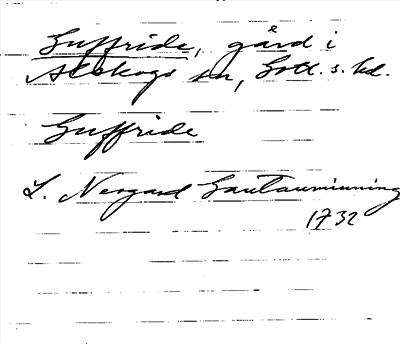 Guffride, gård i
Alskogs sn, Gotl. s. hd.
Guffride
L. Nergard Gautauminning
1732